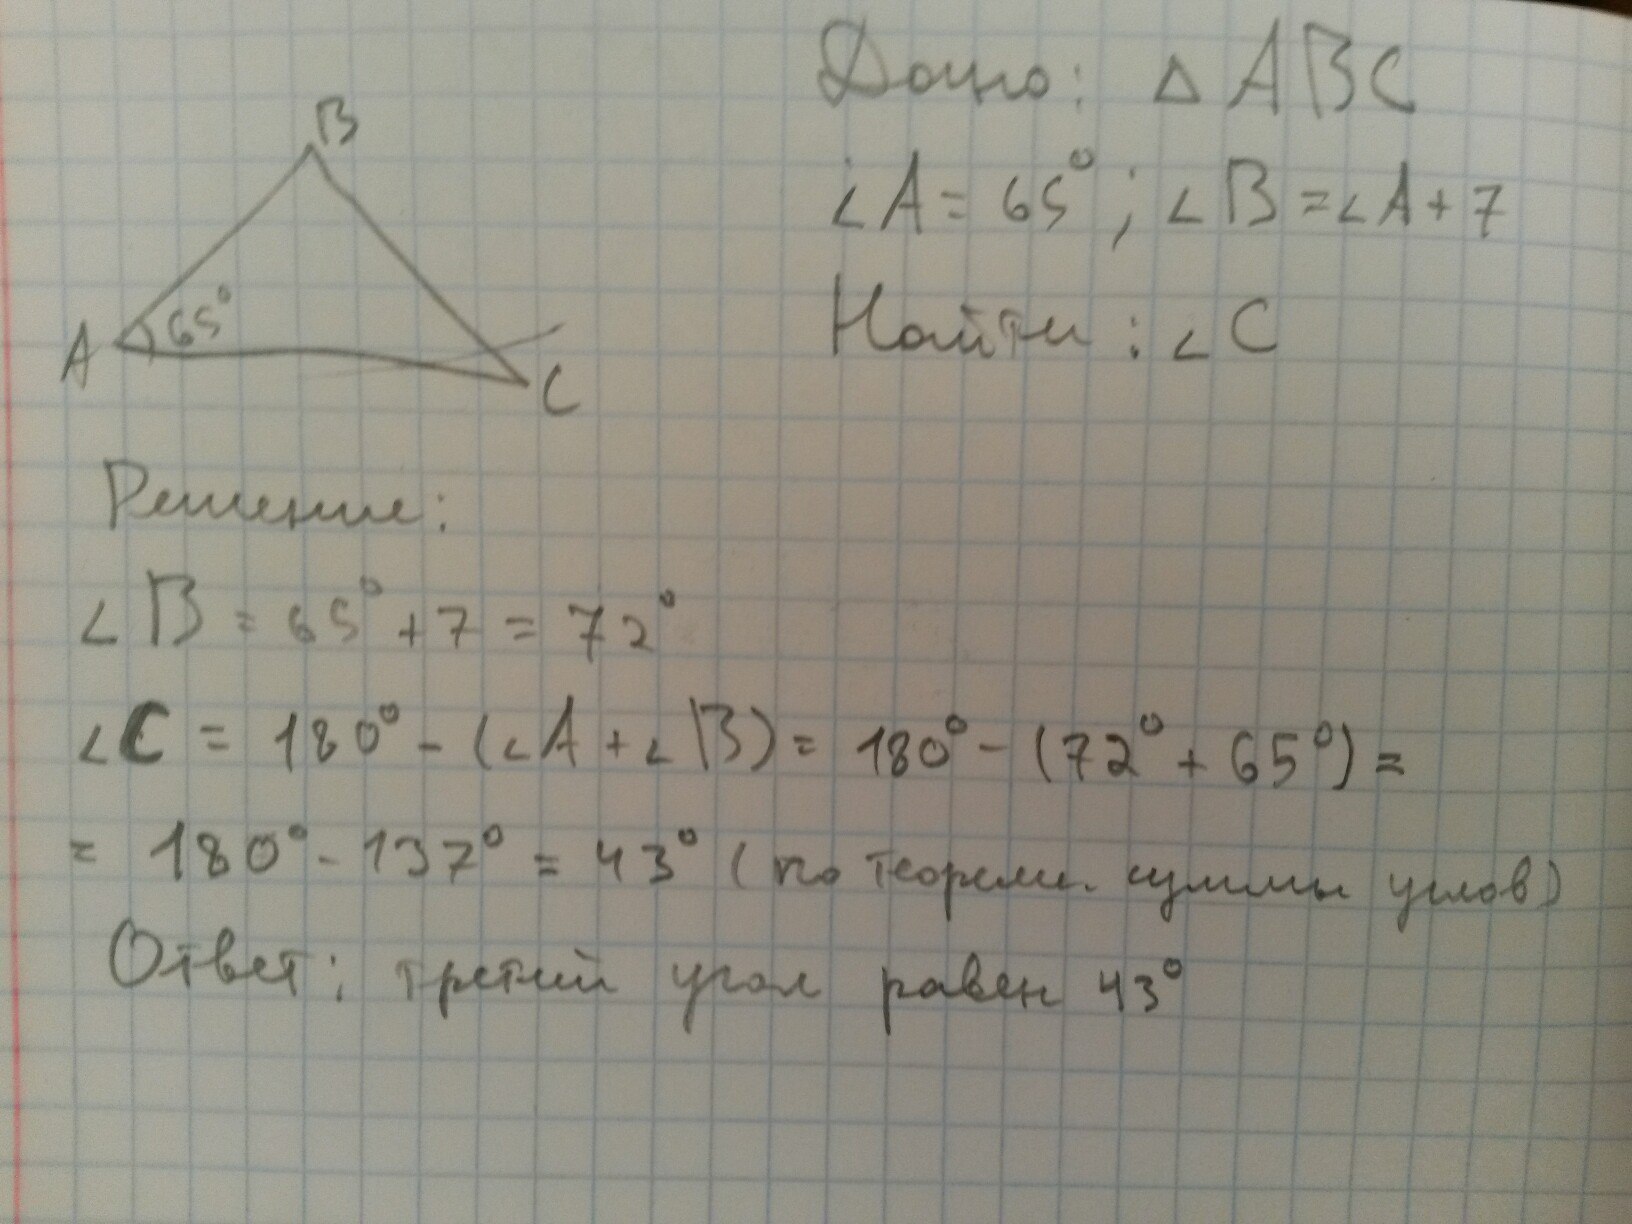 B
A
65°
C
Дано: △ ABC
∠A = 65°; ∠B = ∠A + 7
Найти: ∠C
Решение:
∠B = 65° + 7 = 72°
∠C = 180° - (∠A + ∠B) = 180° - (72° + 65°) =
= 180° - 137° = 43° (по теореме. суммы углов)
Ответ: третий угол равен 43°